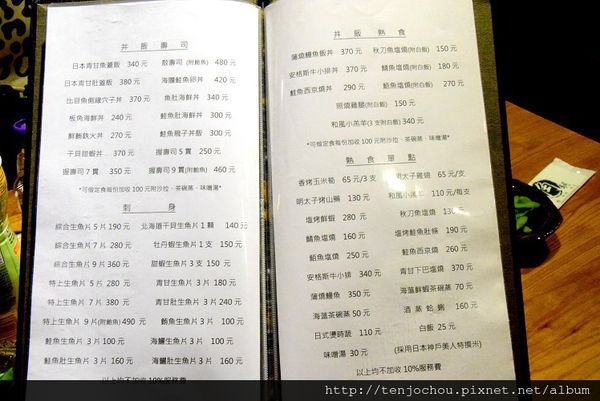 丼 飯 壽 司
日本青甘魚蓋飯 340 元 散壽司 (附鮑魚) 480 元
日本青甘肚蓋飯 380 元 海膽鮭魚卵丼 420 元
比目魚側緣穴子丼 370 元 魚肚海鮮丼 340 元
板角海鮮丼 240 元 鮭魚肚海鮮丼 300 元
鮮鮪鉄火丼 270 元 鮭魚親子丼飯 300 元
干貝甜蝦丼 370 元 握壽司 5 貫 250 元
握壽司 7 貫 350 元 握壽司 9 貫 (附鮑魚) 460 元
*可指定食每份加收 100 元附沙拉、茶碗蒸、味噌湯*
刺 身
綜合生魚片 5 片 190 元 北海道干貝生魚片 1 顆 140 元
綜合生魚片 7 片 280 元 牡丹蝦生魚片 1 支 150 元
綜合生魚片 9 片 360 元 甜蝦生魚片 3 支 150 元
特上生魚片 5 片 280 元 青甘生魚片 3 片 180 元
特上生魚片 7 片 380 元 青甘肚生魚片 3 片 240 元
特上生魚片 9 片(附鮑魚) 490 元 鮪魚生魚片 3 片 100 元
鮭魚生魚片 3 片 100 元 海鱺生魚片 3 片 100 元
鮭魚肚生魚片 3 片 160 元 海鱺肚生魚片 3 片 160 元
以上均不加收 10%服務費
丼 飯 熟 食
蒲燒鰻魚飯丼 370 元 秋刀魚塩燒(附白飯) 150 元
安格斯牛小排丼 370 元 鯖魚塩燒(附白飯) 180 元
鮭魚西京燒丼 290 元 鮭魚塩燒(附白飯) 270 元
照燒雞腿(附白飯) 150 元
和風小羔羊(3 支附白飯) 340 元
*可指定食每份加收 100 元附沙拉、茶碗蒸、味噌湯*
熟 食 單 點
香烤玉米筍 65 元/3 支 明太子雞翅 65 元/支
明太子烤山藥 130 元 和風小羔羊 110 元/每支
塩烤鮮蝦 280 元 秋刀魚塩燒 130 元
鯖魚塩燒 160 元 塩烤鮭魚肚條 190 元
鮭魚塩燒 250 元 鮭魚西京燒 260 元
安格斯牛小排 340 元 青甘下巴塩燒 370 元
蒲燒鰻魚 350 元 海菹鮮蝦茶碗蒸 70 元
海菹茶碗蒸 50 元 酒 蒸 蛤 蜊 160 元
日式燙時蔬 110 元 白飯 25 元
味噌湯 30 元 (採用日本神戶美人特撰米)
以上均不加收 10%服務費
http://tenjochou.pixnet.net/album